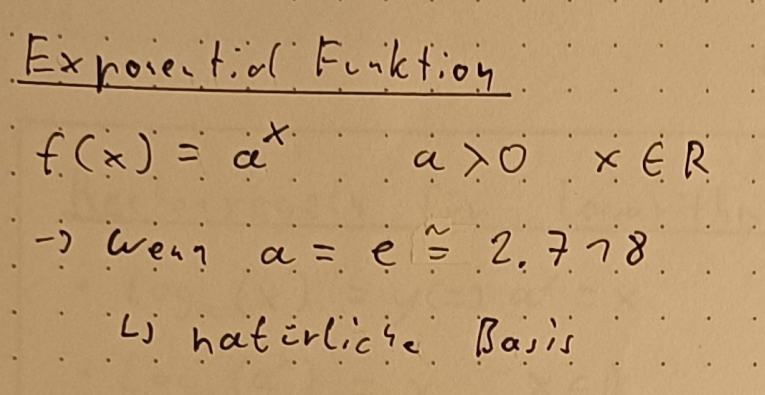 Exponential Funktion
f(x) = a^x a > 0 x ∈ R
-> wenn a = e ≅ 2.718
↳ natürliche Basis